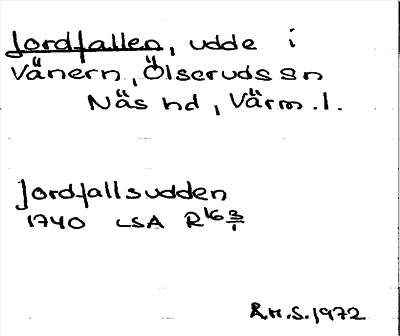 Jordfallen, udde i
Vänern, Ölseruds sn
Näs hd, Värm. l.
Jordfallsudden
1740 LSA R16 3/1
R.H.S. 1972